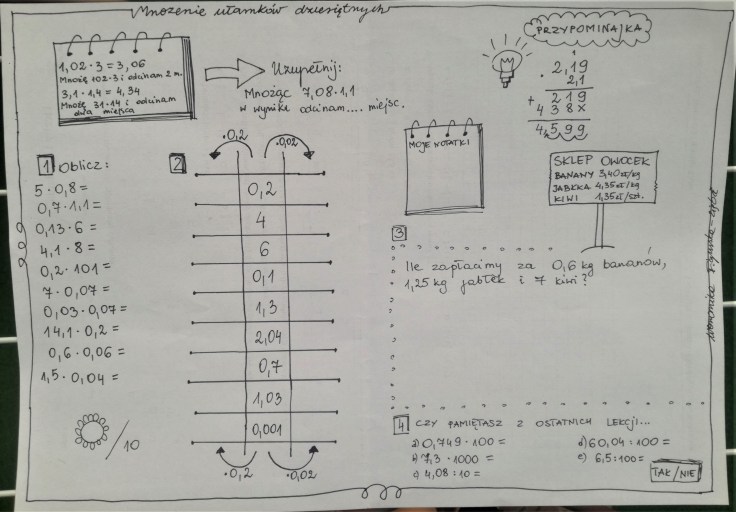 Mnożenie ułamków dziesiętnych
1,02 · 3 = 3,06
Mnożę 102·3 i odcinam 2 m.
3,1 · 1,4 = 4,34
Mnożę 31·14 i odcinam
dwa miejsca
Uzupełnij:
Mnożąc 7,08·1,1
w wyniku odcinam.... miejsc.
PRZYPOMINAJKA
1
2,19
· 2,1
219
+ 438x
4,599
MOJE NOTATKI
SKLEP OWOCEK
BANANY 3,40zł/kg
JABŁKA 4,35zł/kg
KIWI 1,35zł/szt.
1 Oblicz:
5 · 0,8 =
0,7 · 1,1 =
0,13 · 6 =
4,1 · 8 =
0,2 · 101 =
7 · 0,07 =
0,03 · 0,07 =
14,1 · 0,2 =
0,6 · 0,06 =
1,5 · 0,04 =
/10
2
·0,2 ·0,02
0,2
4
6
0,1
1,3
2,04
0,7
1,03
0,001
·0,2 ·0,02
3
Ile zapłacimy za 0,6 kg bananów,
1,25 kg jabłek i 7 kiwi?
4 CZY PAMIĘTASZ Z OSTATNICH LEKCJI...
a) 0,749 · 100 =
b) 7,3 · 1000 =
c) 4,08 : 10 =
d) 60,04 : 100 =
e) 6,5 : 100 =
TAK/NIE